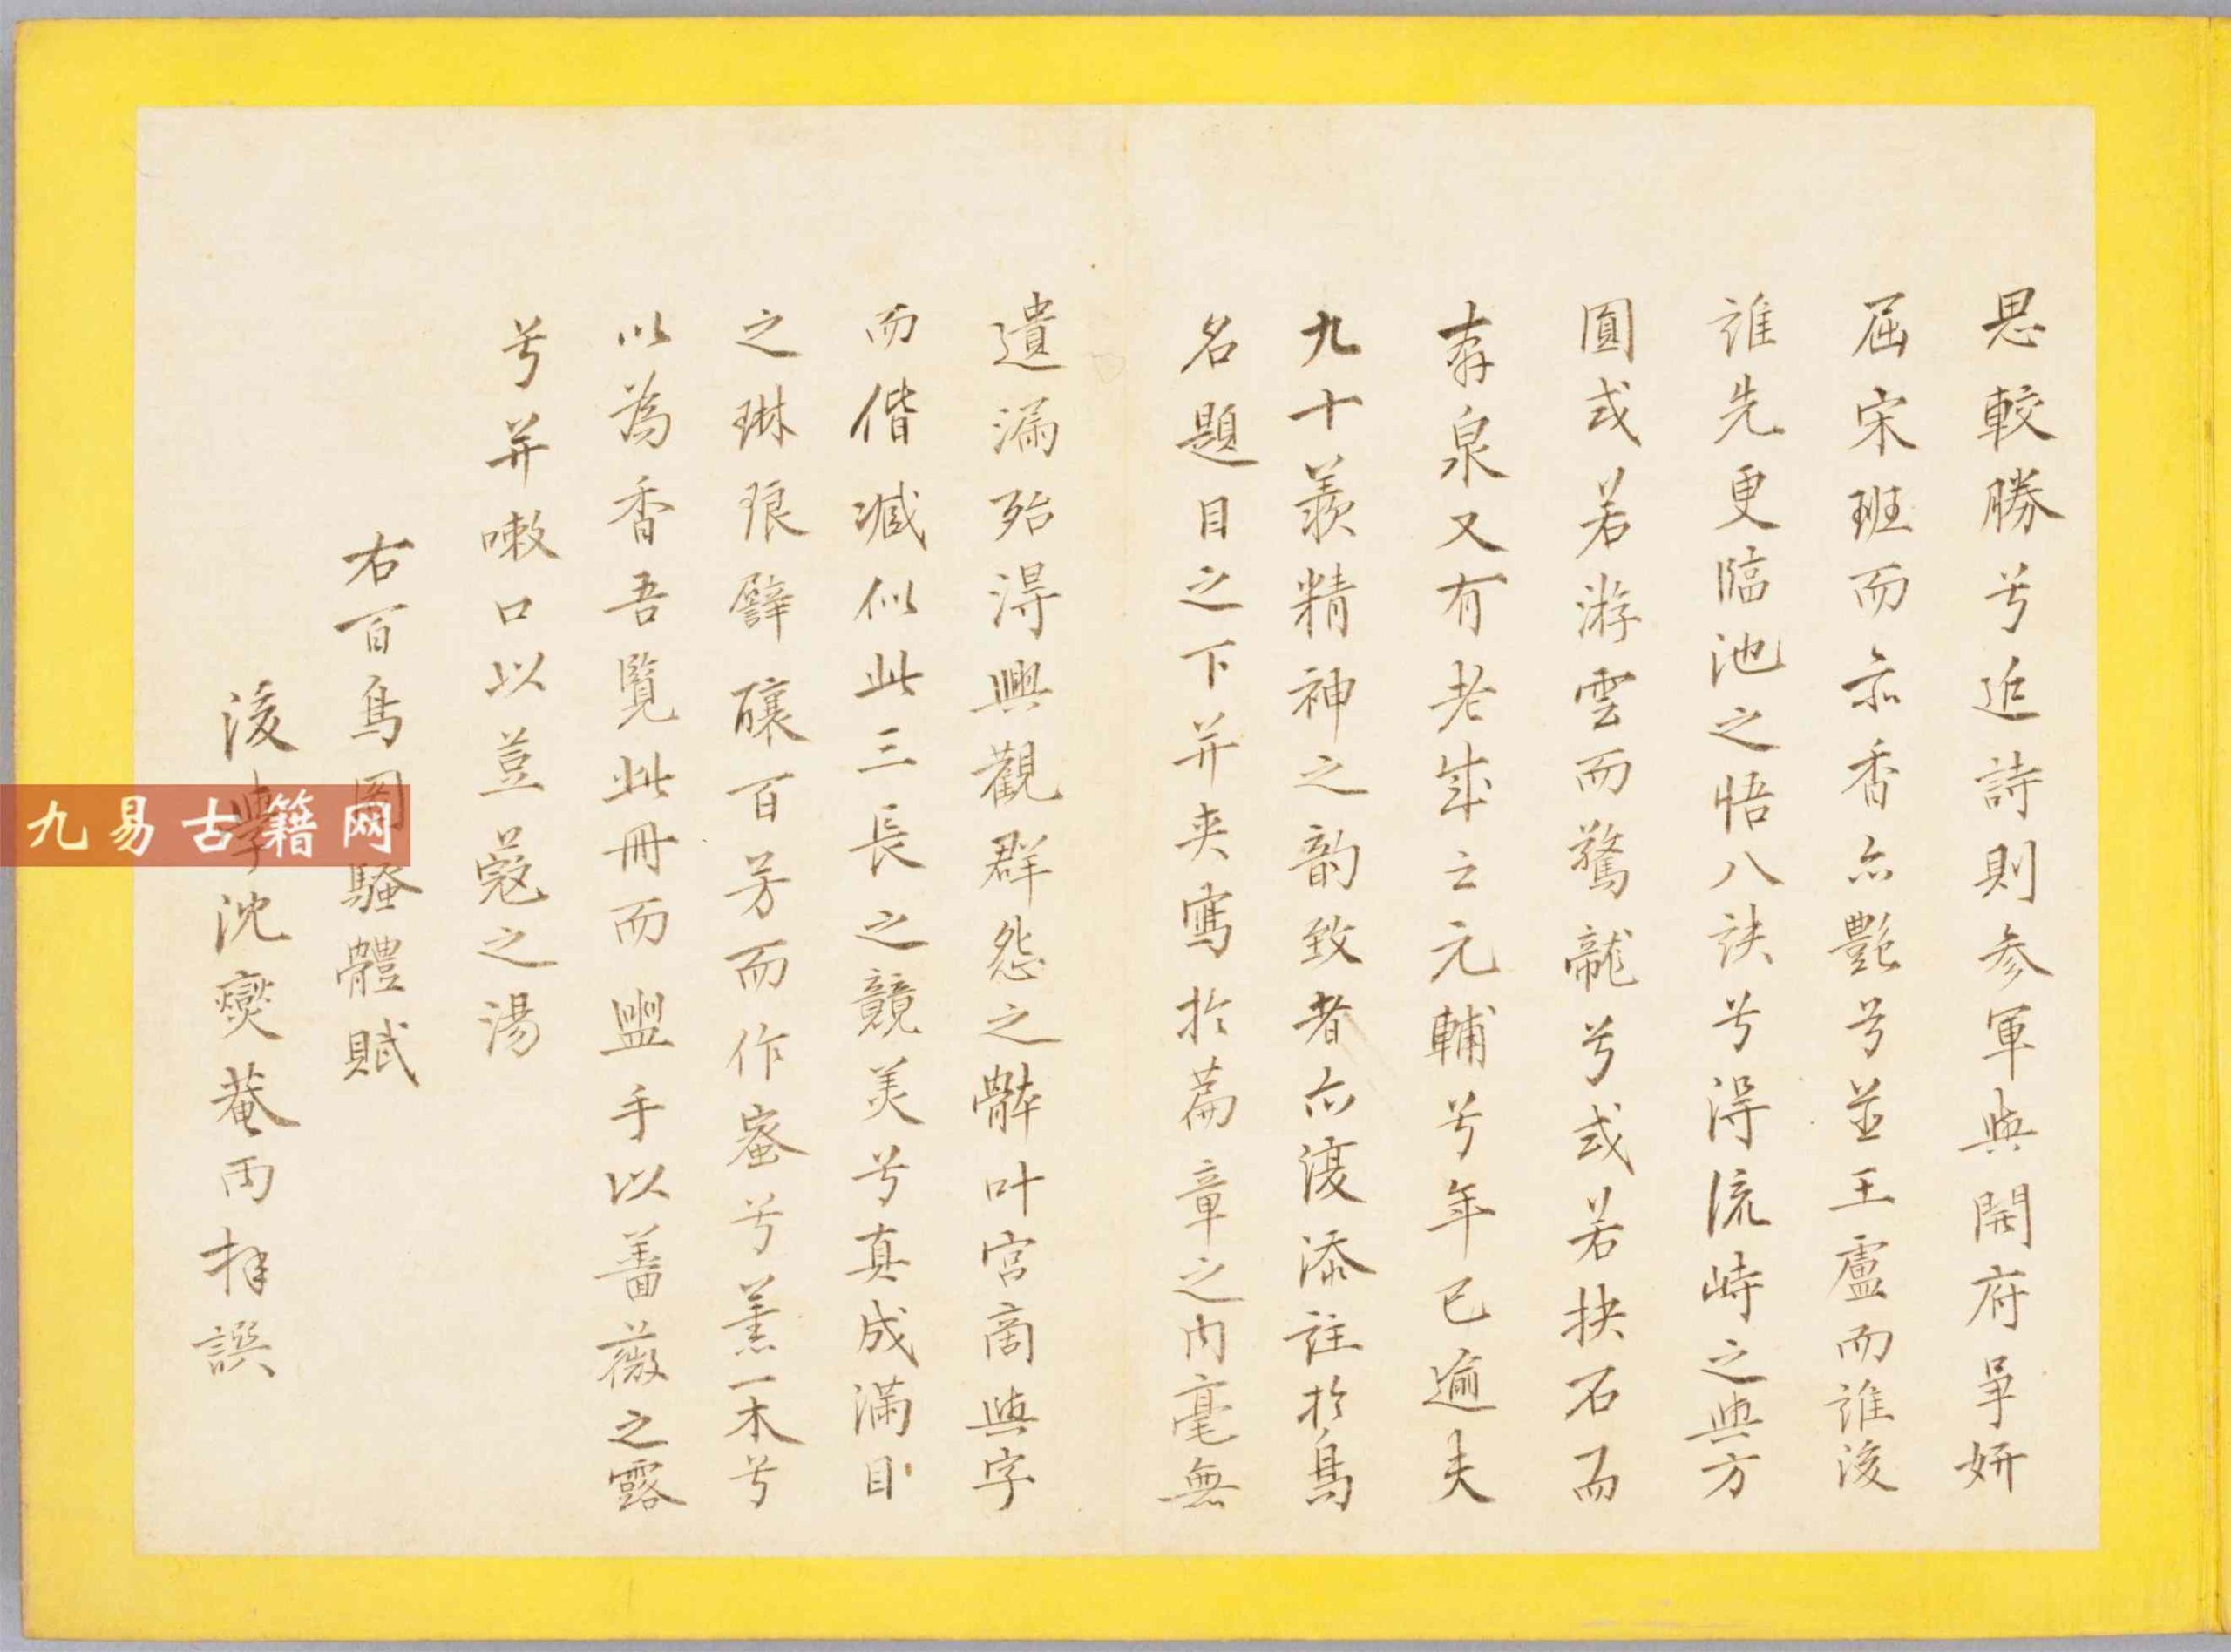 思較勝兮近詩則参軍與開府爭妍
屈宋班而亦香亦艷兮並王盧而誰後
誰先更臨池之悟八訣兮得流峙之與方
圓或若游雲而驚龍兮或若抉石而
奔泉又有老成之元輔兮年已逾夫
九十羨精神之韵致者亦復添註於鳥
名題目之下并夾寫於篇章之内毫無
遺漏殆得興觀群怨之辭叶宮商與字
而偕臧似此三長之競美兮真成滿目
之琳琅譬釀百芳而作蜜兮羨一木兮
以為香吾覽此冊而盥手以薔薇之露
兮并嗽口以荳蔻之湯
右百鳥圖騷體賦
後學沈奕菴丙拜譔
九易古籍网